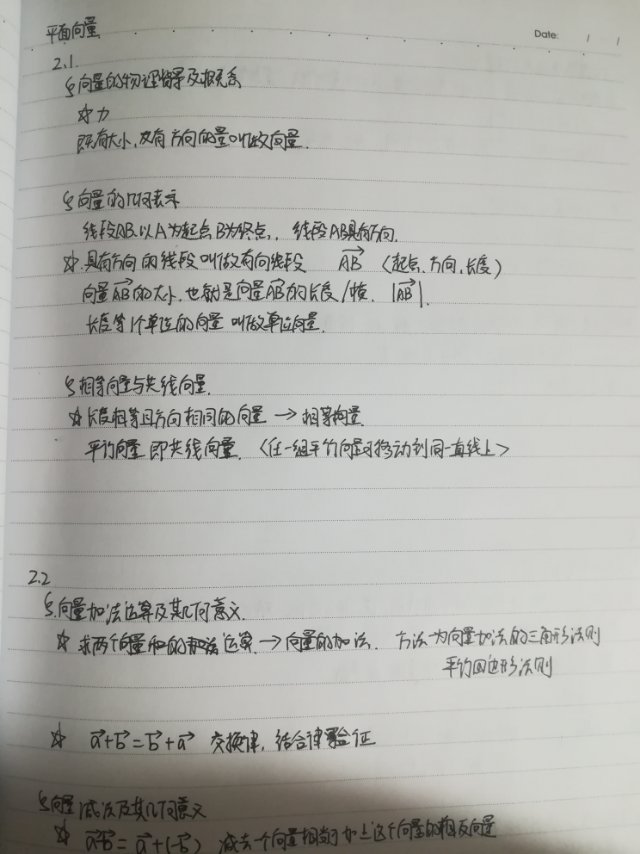 平面向量
Date: / /
2.1
§向量的物理背景及相关系
☆力
既有大小,又有方向的量叫做向量.
§向量的几何表示
线段AB.以A为起点B为终点, 线段AB具有方向.
☆.具有方向的线段叫做有向线段 \overrightarrow{AB} (起点.方向.长度)
向量\overrightarrow{AB}的大小.也就是向量\overrightarrow{AB}的长度/模. |\overrightarrow{AB}|.
长度等1个单位的向量 叫做单位向量.
§相等向量与共线向量.
☆长度相等且方向相同的向量 → 相等向量.
平行向量 即共线向量. <任一组平行向量可移动到同一直线上>
2.2
§.向量加法运算及其几何意义.
☆ 求两个向量和的运算.→向量的加法. 方法为向量加法的三角形法则
平行四边形法则
☆ \vec{a}+\vec{b}=\vec{b}+\vec{a} 交换律, 结合律 验证
§向量减法及其几何意义
☆ \vec{a}-\vec{b}=\vec{a}+(-\vec{b}) 减去一个向量相当于加上这个向量的相反向量